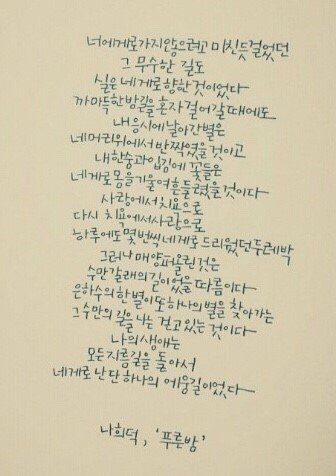 너에게로 가지 않으려고 미친듯 걸었던
그 무수한 길도
실은 네게로 향한 것이었다
까마득한 밤길을 혼자 걸어갈 때에도
내 응시에 날아간 별은
네 머리위에서 반짝였을 것이고
내 한숨과 입김에 꽃들은
네게로 몸을 기울여 흔들렸을 것이다
사랑에서 치욕으로
다시 치욕에서 사랑으로
하루에도 몇번씩 네게로 드리웠던 두레박
그러나 매양 퍼올린 것은
수만 갈래의 길이었을 따름이다
은하수의 한 별이 또 하나의 별을 찾아가는
그 수만의 길을 나는 걷고 있는 것이다
나의 생애는
모든 지름길을 돌아서
네게로 난 단 하나의 에움길이었다
나희덕, '푸른밤'